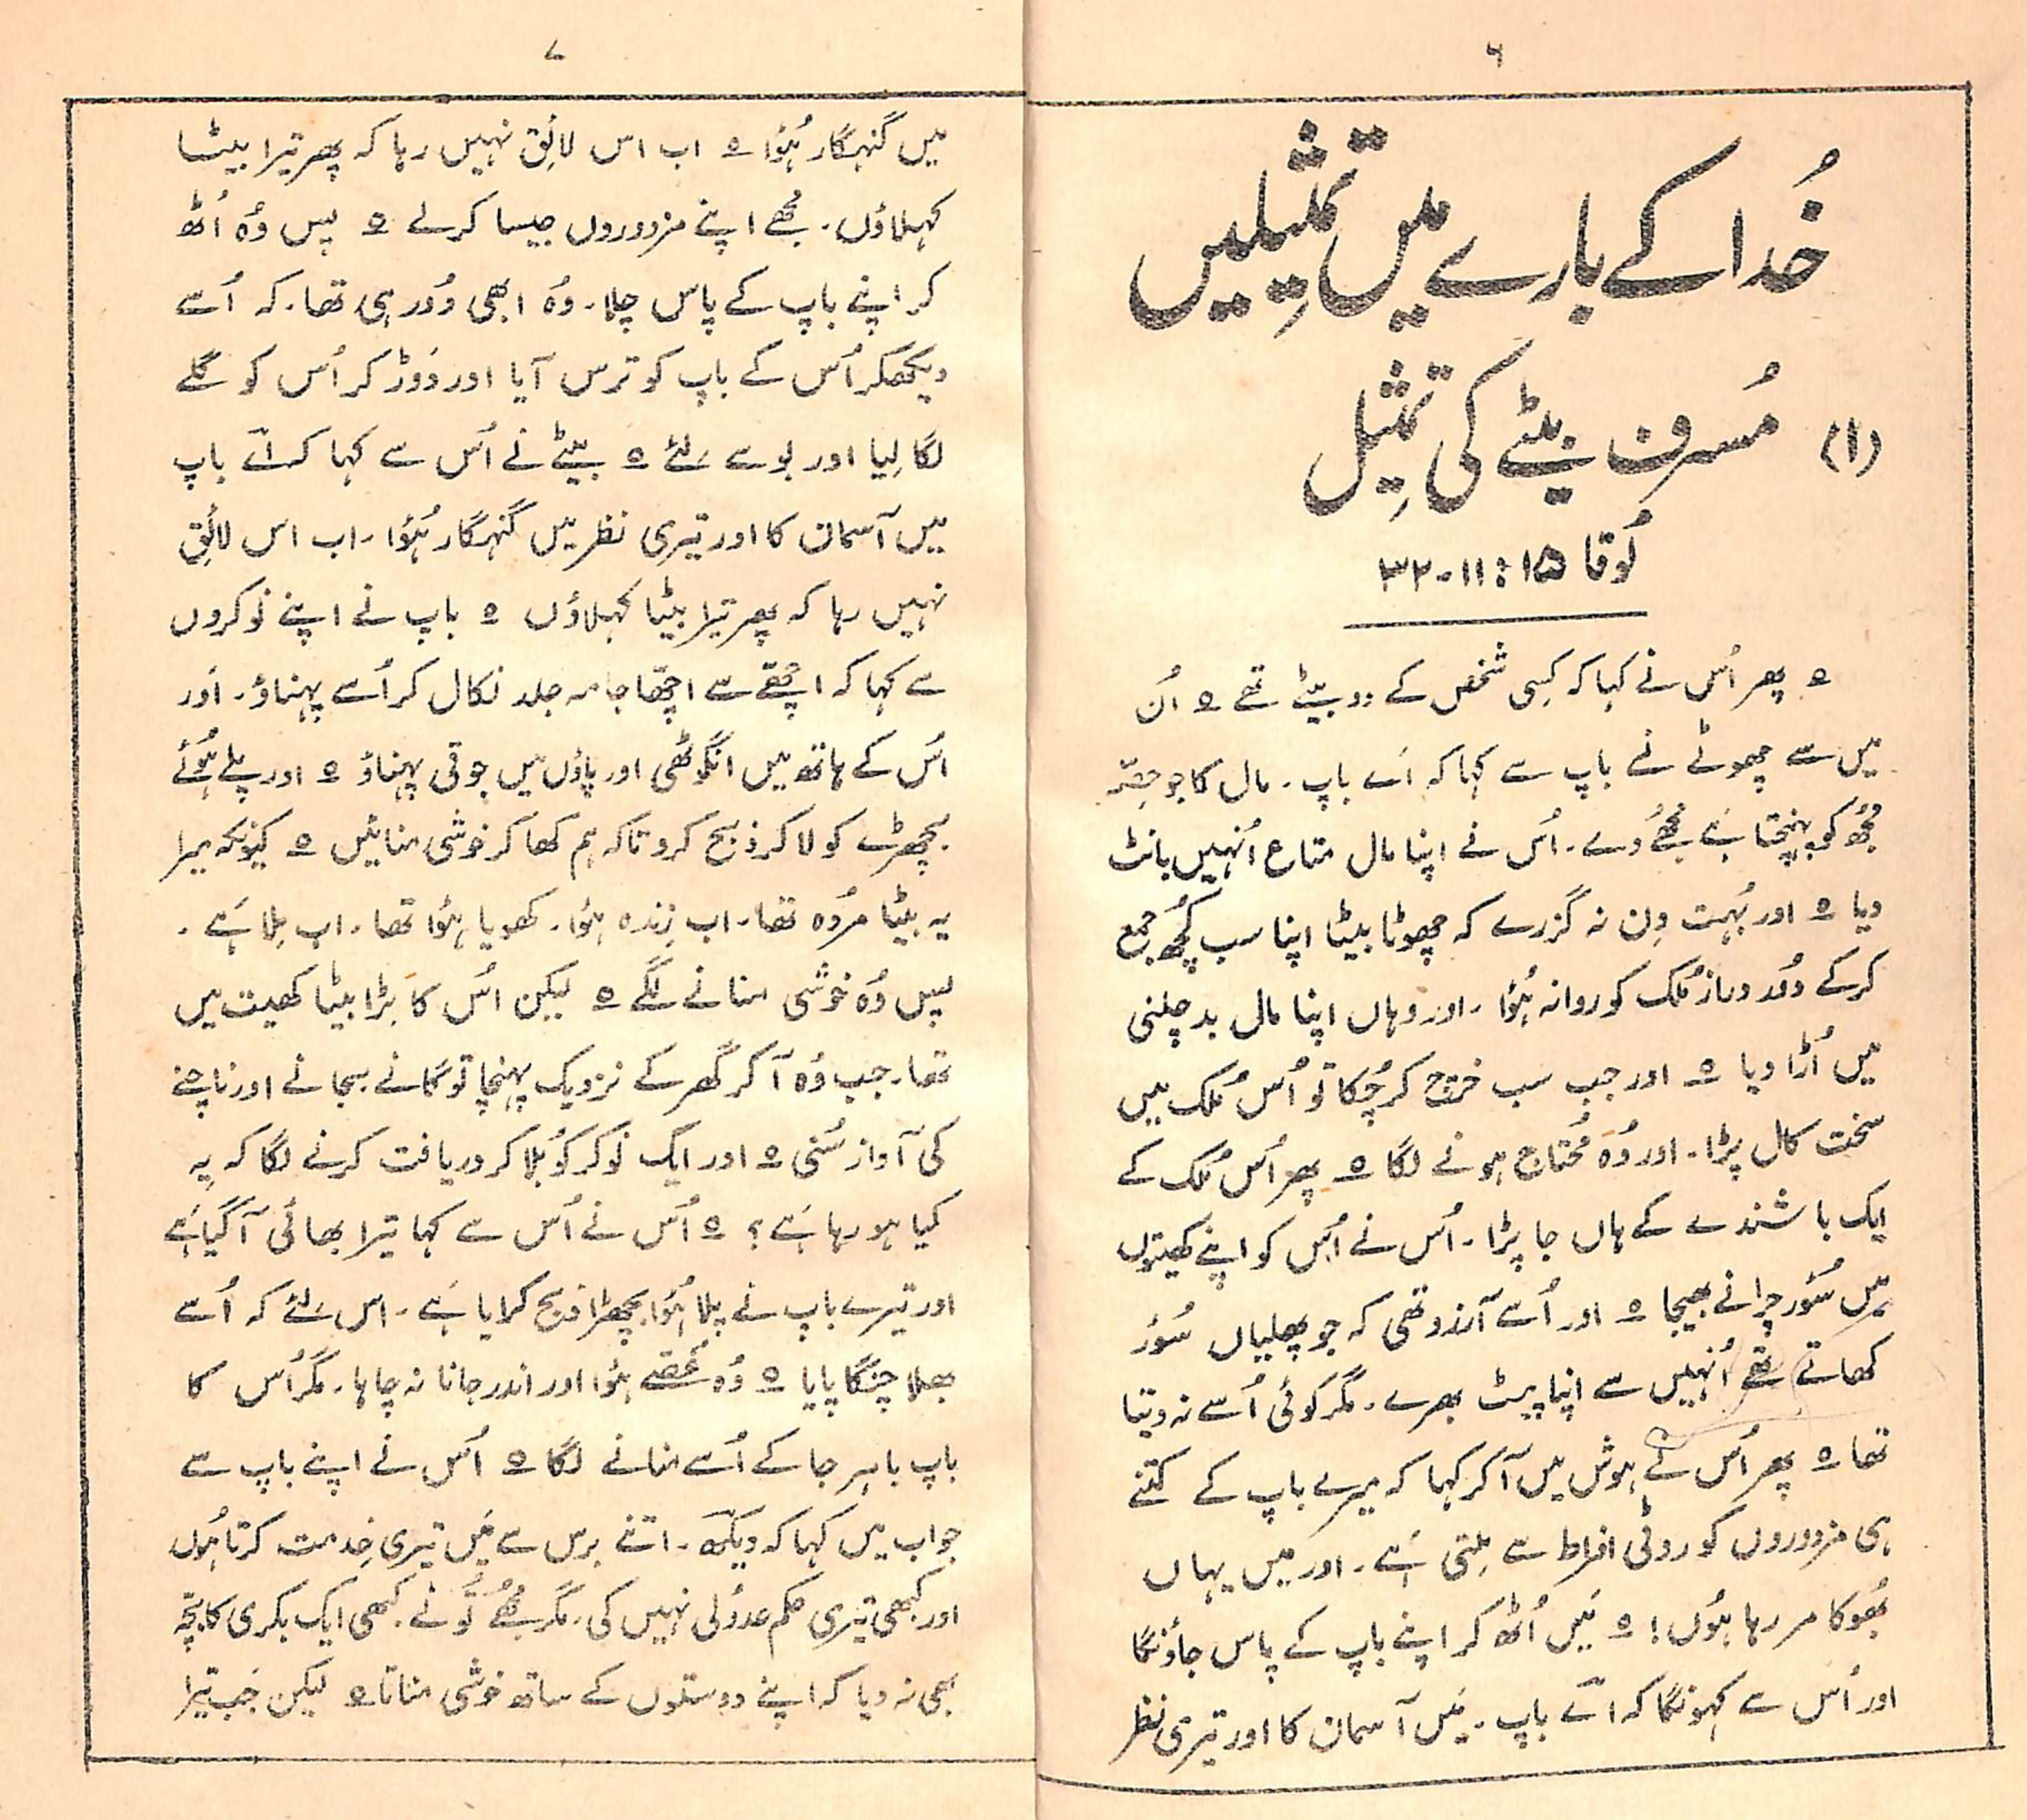 ۶
خُدا کے بارے میں تمثِیلیں
(۱) مُسرف بیٹے کی تمثِیل
لُوقا ۱۵: ۱۱-۳۲
ہ پھر اُس نے کہا کہ کِسی شخص کے دو بیٹے تھے ہ اُن
میں سے چھوٹے نے باپ سے کہا کہ اَے باپ۔ مال کا جو حِصّہ
مُجھ کو پہنچتا ہَے مُجھے دے۔ اُس نے اپنا مال متاع اُنہیں بانٹ
دیا ہ اور بُہت دِن نہ گزرے کہ چھوٹا بیٹا اپنا سب کُچھ جمع
کر کے دُور دراز مُلک کو روانہ ہُؤا۔ اور وہاں اپنا مال بد چلنی
میں اُڑا دیا ہ اور جب سب خرچ کر چُکا تو اُس مُلک میں
سخت کال پڑا۔ اور وُہ مُحتاج ہونے لگا ہ پھر اُس مُلک کے
ایک باشندے کے ہاں جا پڑا۔ اُس نے اُس کو اپنے کھیتوں
میں سُؤر چرانے بھیجا ہ اور اُسے آرزو تھی کہ جو پھلیاں سُؤر
کھاتے تھے اُنہیں سے اپنا پیٹ بھرے۔ مگر کوئی اُسے نہ دیتا
تھا ہ پھر اُس نے ہوش میں آ کر کہا کہ میرے باپ کے کتنے
ہی مزدوروں کو روٹی افراط سے مِلتی ہَے۔ اور میں یہاں
بھُوکا مر رہا ہُوں! ہ مَیں اُٹھ کر اپنے باپ کے پاس جاؤنگا
اور اُس سے کہونگا کہ اَے باپ۔ مَیں آسمان کا اور تیری نظر
۷
میں گنہگار ہُؤا ہ اب اس لائِق نہیں رہا کہ پھر تیرا بیٹا
کہلاؤں۔ مُجھے اپنے مزدوروں جیسا کر لے ہ پس وُہ اُٹھ
کر اپنے باپ کے پاس چلا۔ وُہ ابھی دُور ہی تھا۔ کہ اُسے
دیکھکر اُس کے باپ کو ترس آیا اور دَوڑ کر اُس کو گلے
لگا لِیا اور بوسے لِئے ہ بیٹے نے اُس سے کہا کہ اَے باپ
میں آسمان کا اور تیری نظر میں گنہگار ہُؤا۔ اب اس لائِق
نہیں رہا کہ پھر تیرا بیٹا کہلاؤں ہ باپ نے اپنے نوکروں
سے کہا کہ اچھّے سے اچھّا جامہ جلد نکال کر اُسے پہناؤ۔ اَور
اُس کے ہاتھ میں انگوٹھی اور پاؤں میں جوتی پہناؤ ہ اور پلے ہُوئے
بچھڑے کو لا کر ذبح کرو تاکہ ہم کھا کر خوشی منائیں ہ کیونکہ میرا
یہ بیٹا مُردہ تھا۔ اب زِندہ ہؤا۔ کھویا ہؤا تھا۔ اب مِلا ہَے۔
پس وُہ خوشی منانے لگے ہ لیکن اُس کا بڑا بیٹا کھیت میں
تھا۔ جب وُہ آ کر گھر کے نزدیک پہنچا تو گانے بجانے اور ناچنے
کی آواز سُنی ہ اور ایک نوکر کو بُلا کر دریافت کرنے لگا کہ یہ
کیا ہو رہا ہَے؟ ہ اُس نے اُس سے کہا تیرا بھائی آ گیا ہَے
اور تیرے باپ نے پلا ہُؤا بچھڑا ذبح کرایا ہَے۔ اس لِئے کہ اُسے
بھلا چنگا پایا ہ وُہ غُصّے ہؤا اور اندر جانا نہ چاہا۔ مگر اُس کا
باپ باہر جا کے اُسے منانے لگا ہ اُس نے اپنے باپ سے
جواب میں کہا کہ دیکھ۔ اتنے برس سے مَیں تیری خِدمت کرتا ہُوں
اور کبھی تیری حکم عدُولی نہیں کی۔ مگر مُجھے تُو نے کبھی ایک بکری کا بچّہ
بھی نہ دیا کہ اپنے دوستوں کے ساتھ خوشی مناتا ہ لیکن جب تیرا